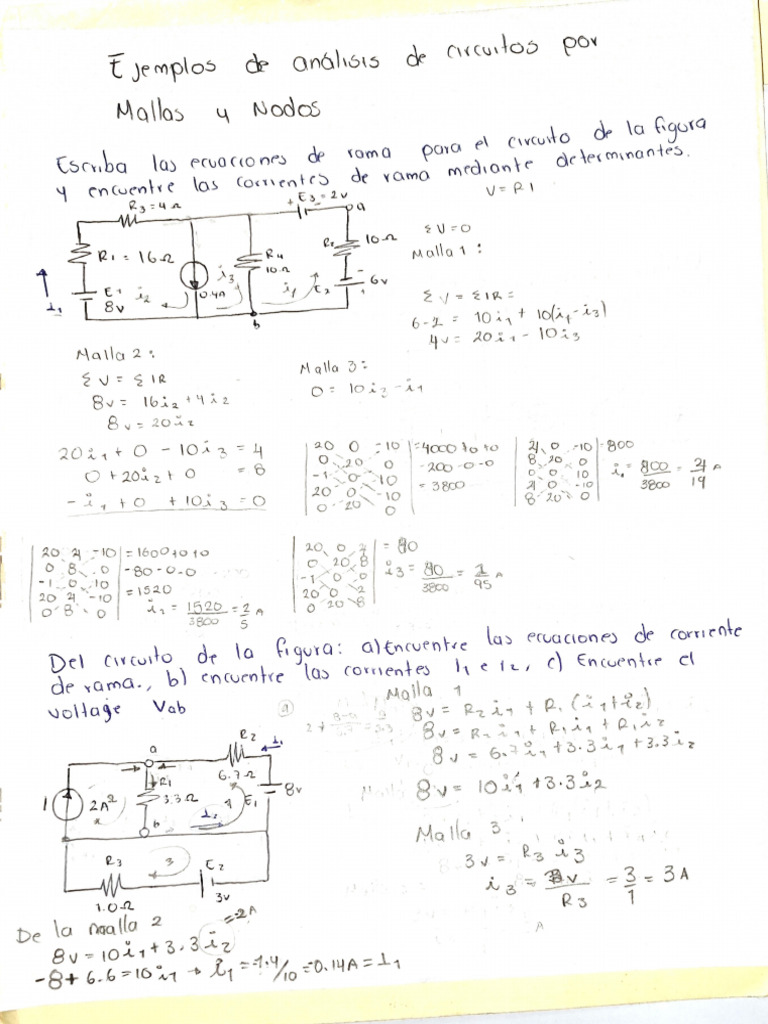 Ejemplos de análisis de circuitos por
Mallas y Nodos
Escriba las ecuaciones de rama para el circuito de la figura
y encuentre las corrientes de rama mediante determinantes.
V=RI
R3=4Ω
+ E3=2v
a
R1=16Ω
i3
R4
10Ω
10Ω
E1
8v
i2
0.4A
i1
6v
I1
b
ΣV=0
Malla 1:
ΣV = ΣIR=
6-2 = 10i1 + 10(i1-i3)
4v = 20i1 - 10i3
Malla 2:
ΣV = ΣIR
8v = 16i2+4i2
8v = 20i2
Malla 3:
0 = 10i3-i1
20i1+0 -10i3 = 4
0+20i2+0 = 8
-i1+0 +10i3=0
20 0 -10
0 20 0
-1 0 10
20 0 -10
0 20 0
=4000+0+0
-200-0-0
=3800
4 0 -10
8 20 0
0 0 10
4 0 -10
8 20 0
=800
i1= 800/3800 = 4/19 A
20 4 -10
0 8 0
-1 0 10
20 4 -10
0 8 0
=1600+0+0
-80-0-0
=1520
i2 = 1520/3800 = 2/5 A
20 0 4
0 20 8
-1 0 0
0 20 8
= 80
i3= 80/3800 = 2/95 A
Del circuito de la figura: a) Encuentre las ecuaciones de corriente
de rama., b) encuentre las corrientes I1 e I2, c) Encuentre el
voltage Vab
a
R2
I1
6.7Ω
R1
3.3Ω
I
2A
2
E1
8v
b
I2
R3
3
E2
1.0Ω
3v
Malla 1
8v = R2 i1 + R1 (i1+i2)
8v = R2 i1 + R1 i1 + R1 i2
8v = 6.7i1+3.3i1+3.3i2
8v = 10i1+3.3i2
Malla 3
3v = R3 i3
i3 = 3v/R3 = 3/1 = 3A
De la malla 2
=-2A
8v=10i1+3.3i2
-8+6.6=10i1 → i1=-1.4/10=-0.14A=I1